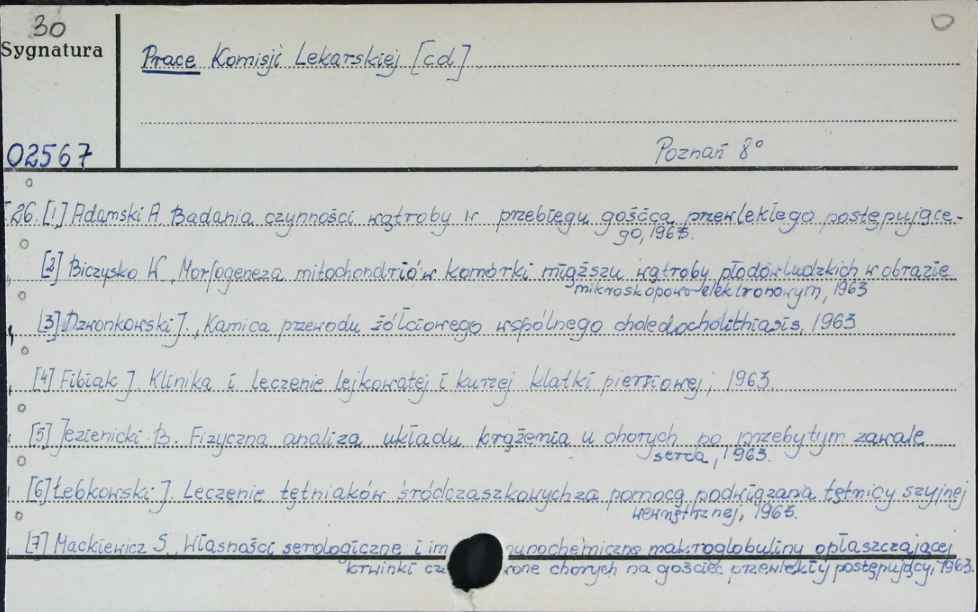 30
Sygnatura
Prace Komisji Lekarskiej [cd]
02567
Poznań 8°
26. [1] Adamski A. Badania czynności wątroby w przebiegu gośćca przewlekłego postępujące-
go, 1963.
[2] Biczysko W. Morfogeneza mitochondriów komórki miąższu wątroby płodów ludzkich w obrazie
mikroskopowo-elektronowym, 1963
[3] Dzwonkowski J., Kamica przewodu żółciowego wspólnego choledocholithiasis, 1963
[4] Fibiak J. Klinika i leczenie lejkowatej i kurzej klatki piersiowej, 1963.
[5] Jezienicki B. Fizyczna analiza układu krążenia u chorych po przebytym zawale
serca, 1963.
[6] Łebkowski J. Leczenie tętniaków śródczaszkowych za pomocą podwiązana tętnicy szyjnej
wewnętrznej, 1963.
[7] Mackiewicz S. Własności serologiczne i immunochemiczne makroglobuliny opłaszczającej
krwinki chorych na gościec przewlekły postępujący, 1963.